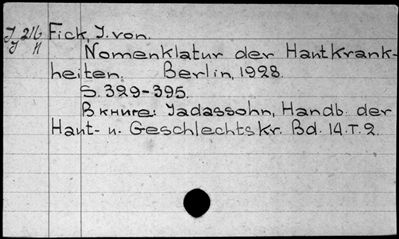 J 216 Fick, J. von.
J 11
Nomenklatur der Hautkrank-
heiten. Berlin, 1928.
S. 329-395.
В книге: Jadassohn, Handb. der
Haut- u. Geschlechtskr. Bd. 14. T. 2.